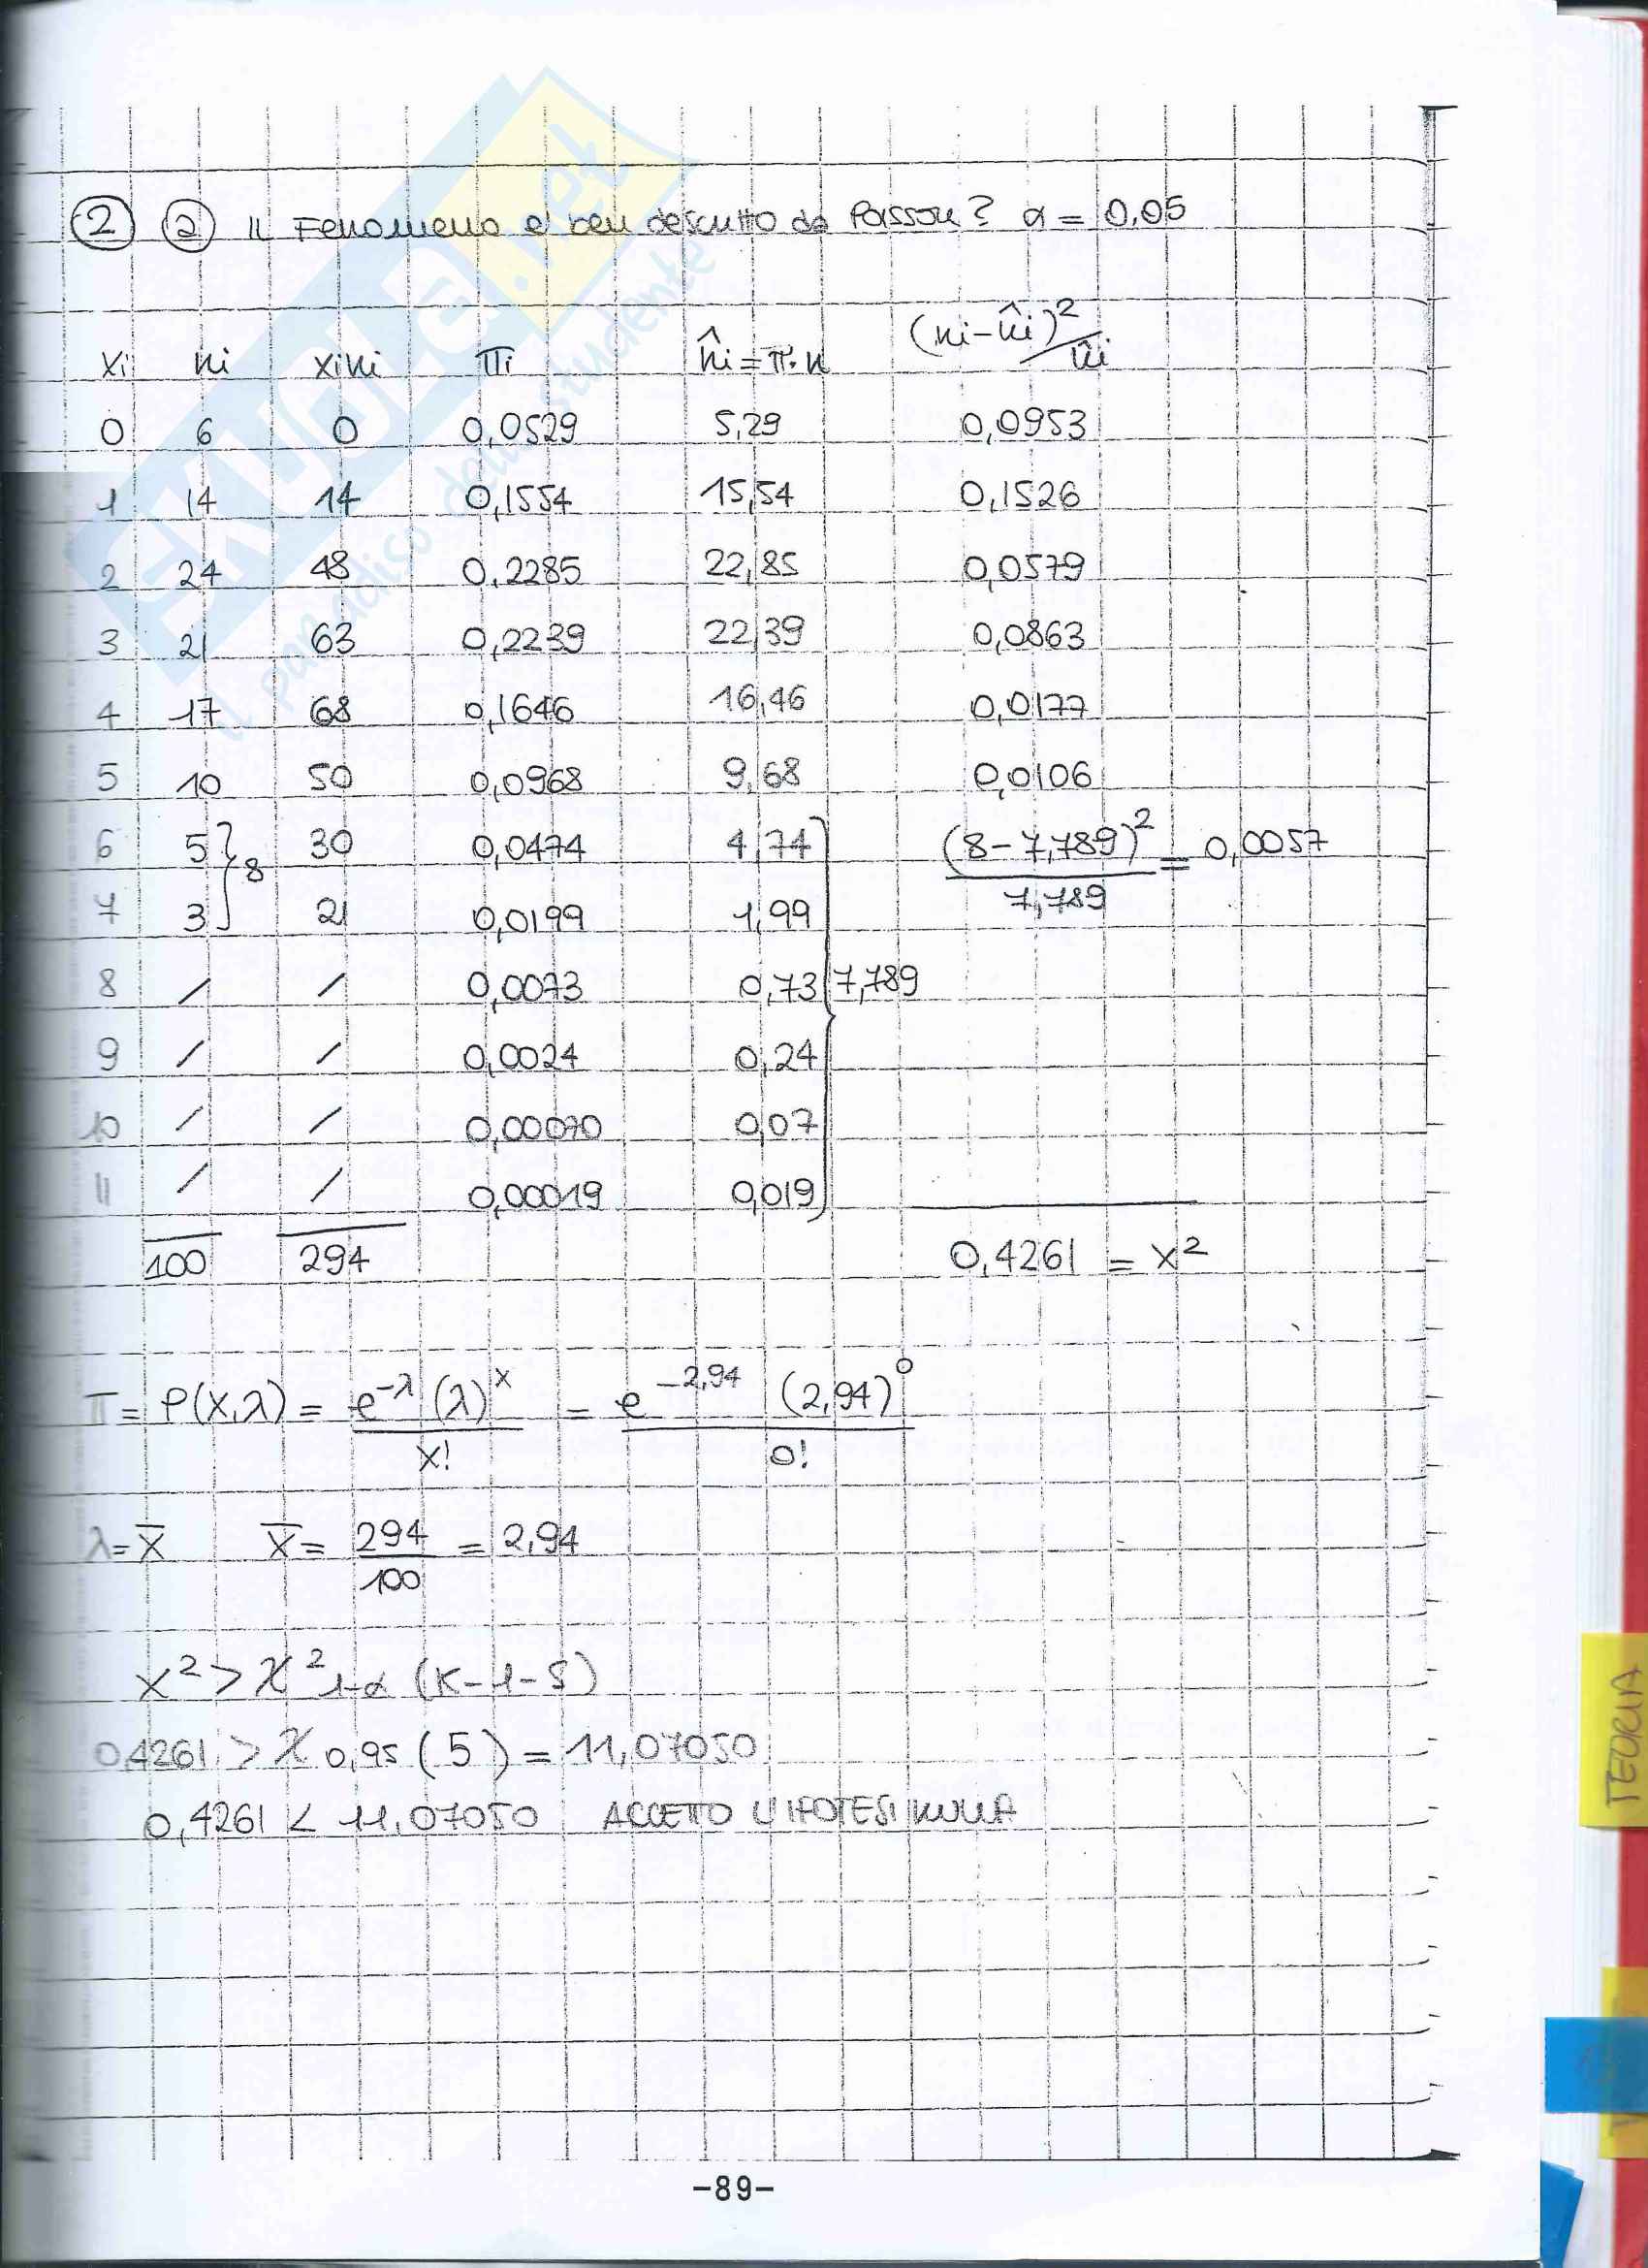 ② ⓐ Il Fenomeno e' ben descritto da Poisson? α = 0,05
xi ni xini πi n̂i = π·n (ni - n̂i)²/n̂i
0 6 0 0,0529 5,29 0,0953
1 14 14 0,1554 15,54 0,1526
2 24 48 0,2285 22,85 0,0579
3 21 63 0,2239 22,39 0,0863
4 17 68 0,1646 16,46 0,0177
5 10 50 0,0968 9,68 0,0106
6 5 30 0,0474 4,74 (8 - 7,789)²/7,789 = 0,0057
8
7 3 21 0,0199 1,99
8 / / 0,0073 0,73 7,789
9 / / 0,0024 0,24
10 / / 0,00070 0,07
11 / / 0,00019 0,019
100 294 0,4261 = X²
π = P(X,λ) = e^-λ (λ)^x / x! = e^-2,94 (2,94)^0 / 0!
λ = X̄ X̄ = 294/100 = 2,94
X² > χ² 1-α (K-1-S)
0,4261 > χ 0,95 (5) = 11,07050
0,4261 < 11,07050 ACCETTO L'IPOTESI NULLA
-89-
TEORIA
SKUOLA.net
il paradiso dello studente